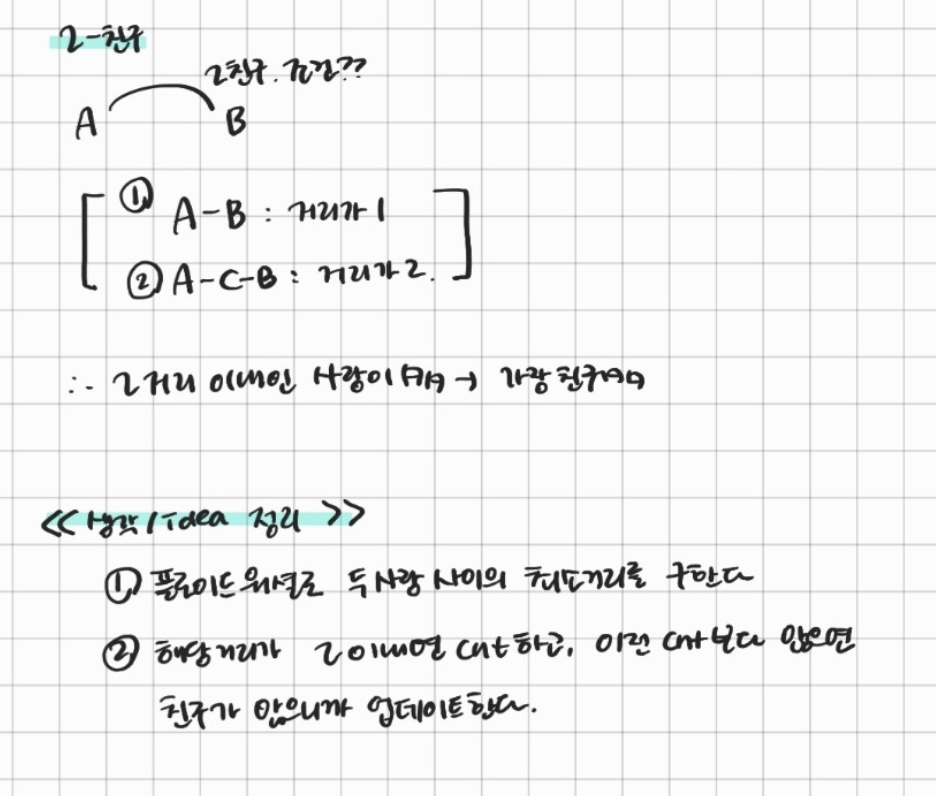 2-친구
2친구. 조건??
A B
① A-B : 거리가 1
② A-C-B : 거리가 2.
∴ 2거리 이내인 사람이 MAX → 가장 친구 MAX
<< 생각/Idea 정리 >>
① 플로이드 워셜로 두 사람 사이의 최단거리를 구한다
② 해당 거리가 2이내면 cnt하고, 이전 cnt보다 많으면
친구가 많으니까 업데이트한다.